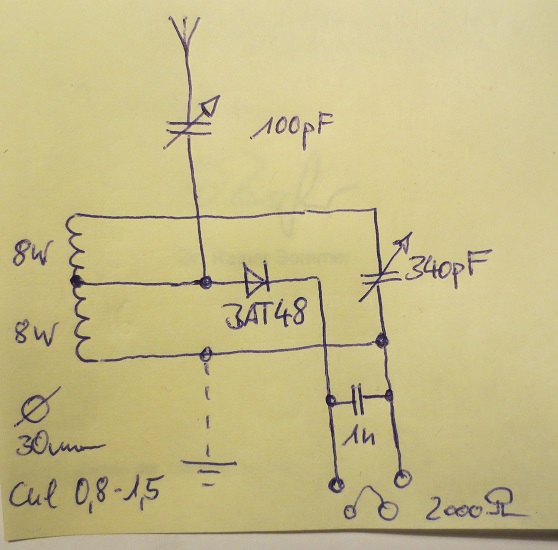 100pF
8W
340pF
BAT48
8W
1n
Ø
30mm
CuL 0,8-1,5
2000Ω